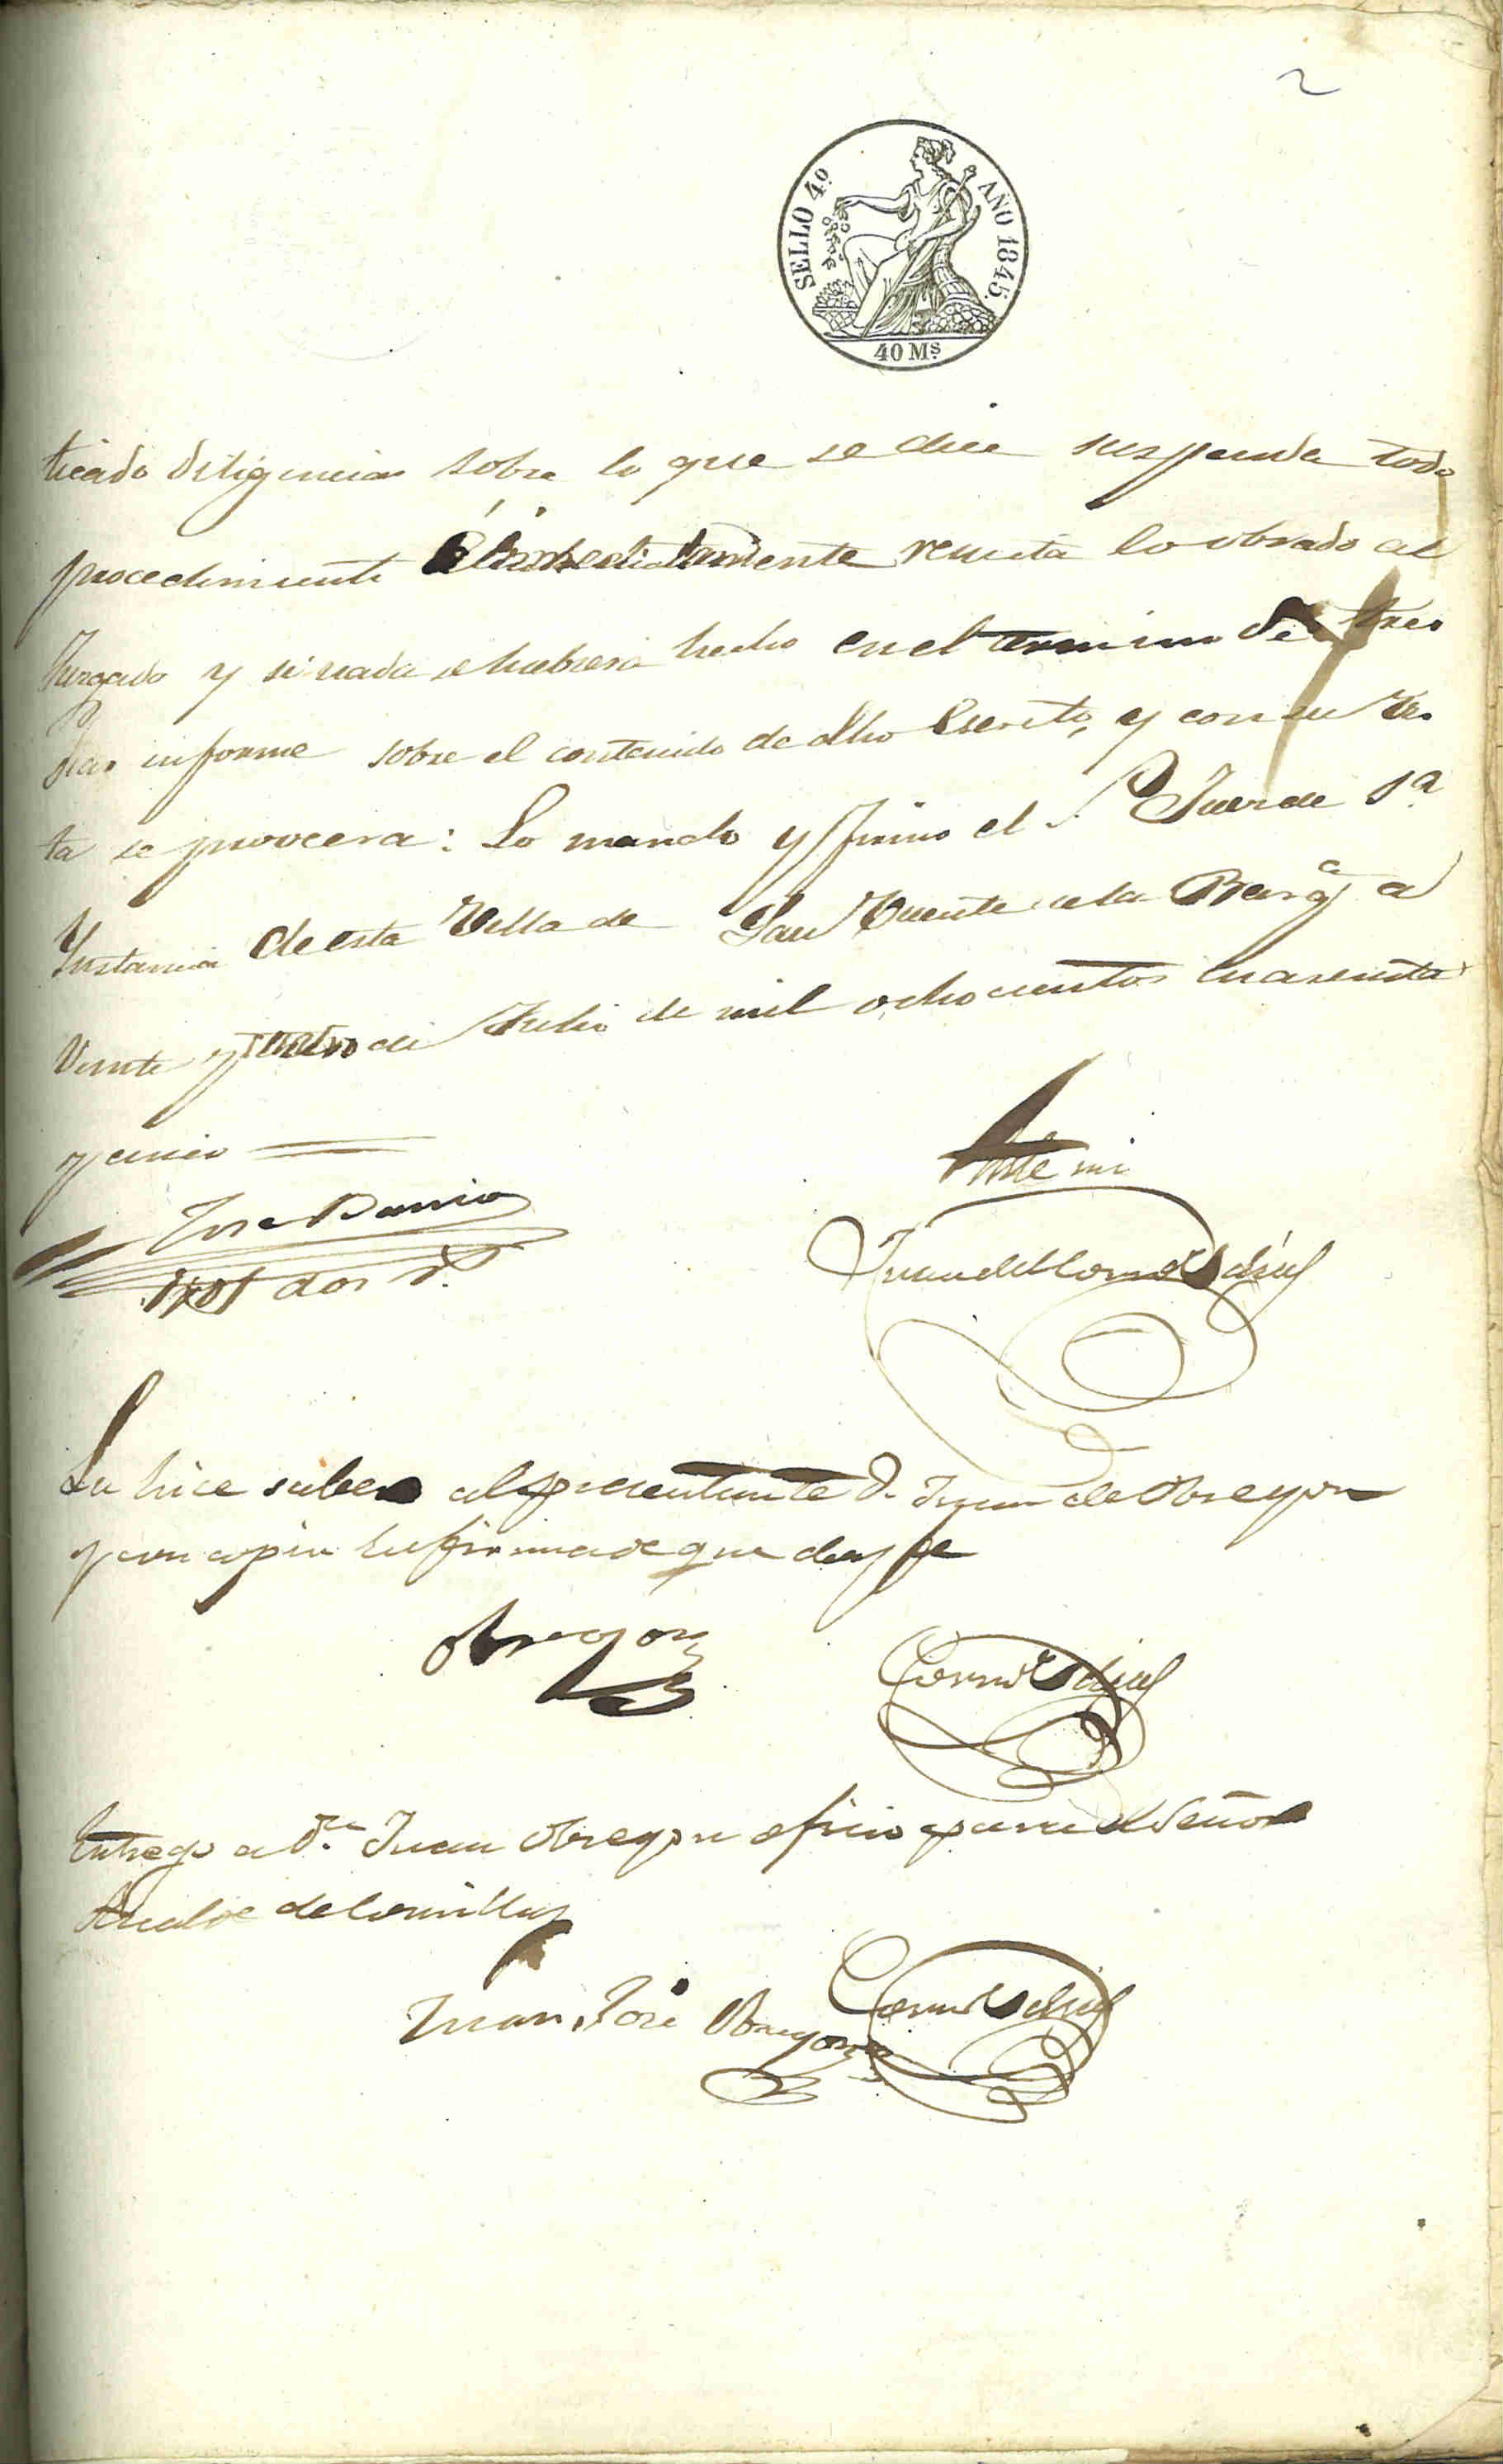 2
SELLO 4º AÑO 1845.
40 Mˢ
ticado diligencias sobre lo que se dice suspenda todo
procedimiento é inmediatamente remita lo obrado al
Juzgado y si nada se hubiera hecho en el termino de tres
dias informe sobre el contenido de dho Escrito, y con su re-
ta se proveera: Lo mando y firmo el Sʳ Juez de 1ª
Instancia de esta Villa de San Vicente de la Barqᵃ a
Veinte y de Julio de mil ochocientos cuarenta
y cinco
Ante mi
Jose
dos rˢ
Juan del
Lu hice saber al presentante D. Juan de Obregon
y con copia lo firma de que doy fe
Obregon
Entrego a Dⁿ Juan Obregon oficio para el Señor
Alcalde de Comillas
Juan José Obregon